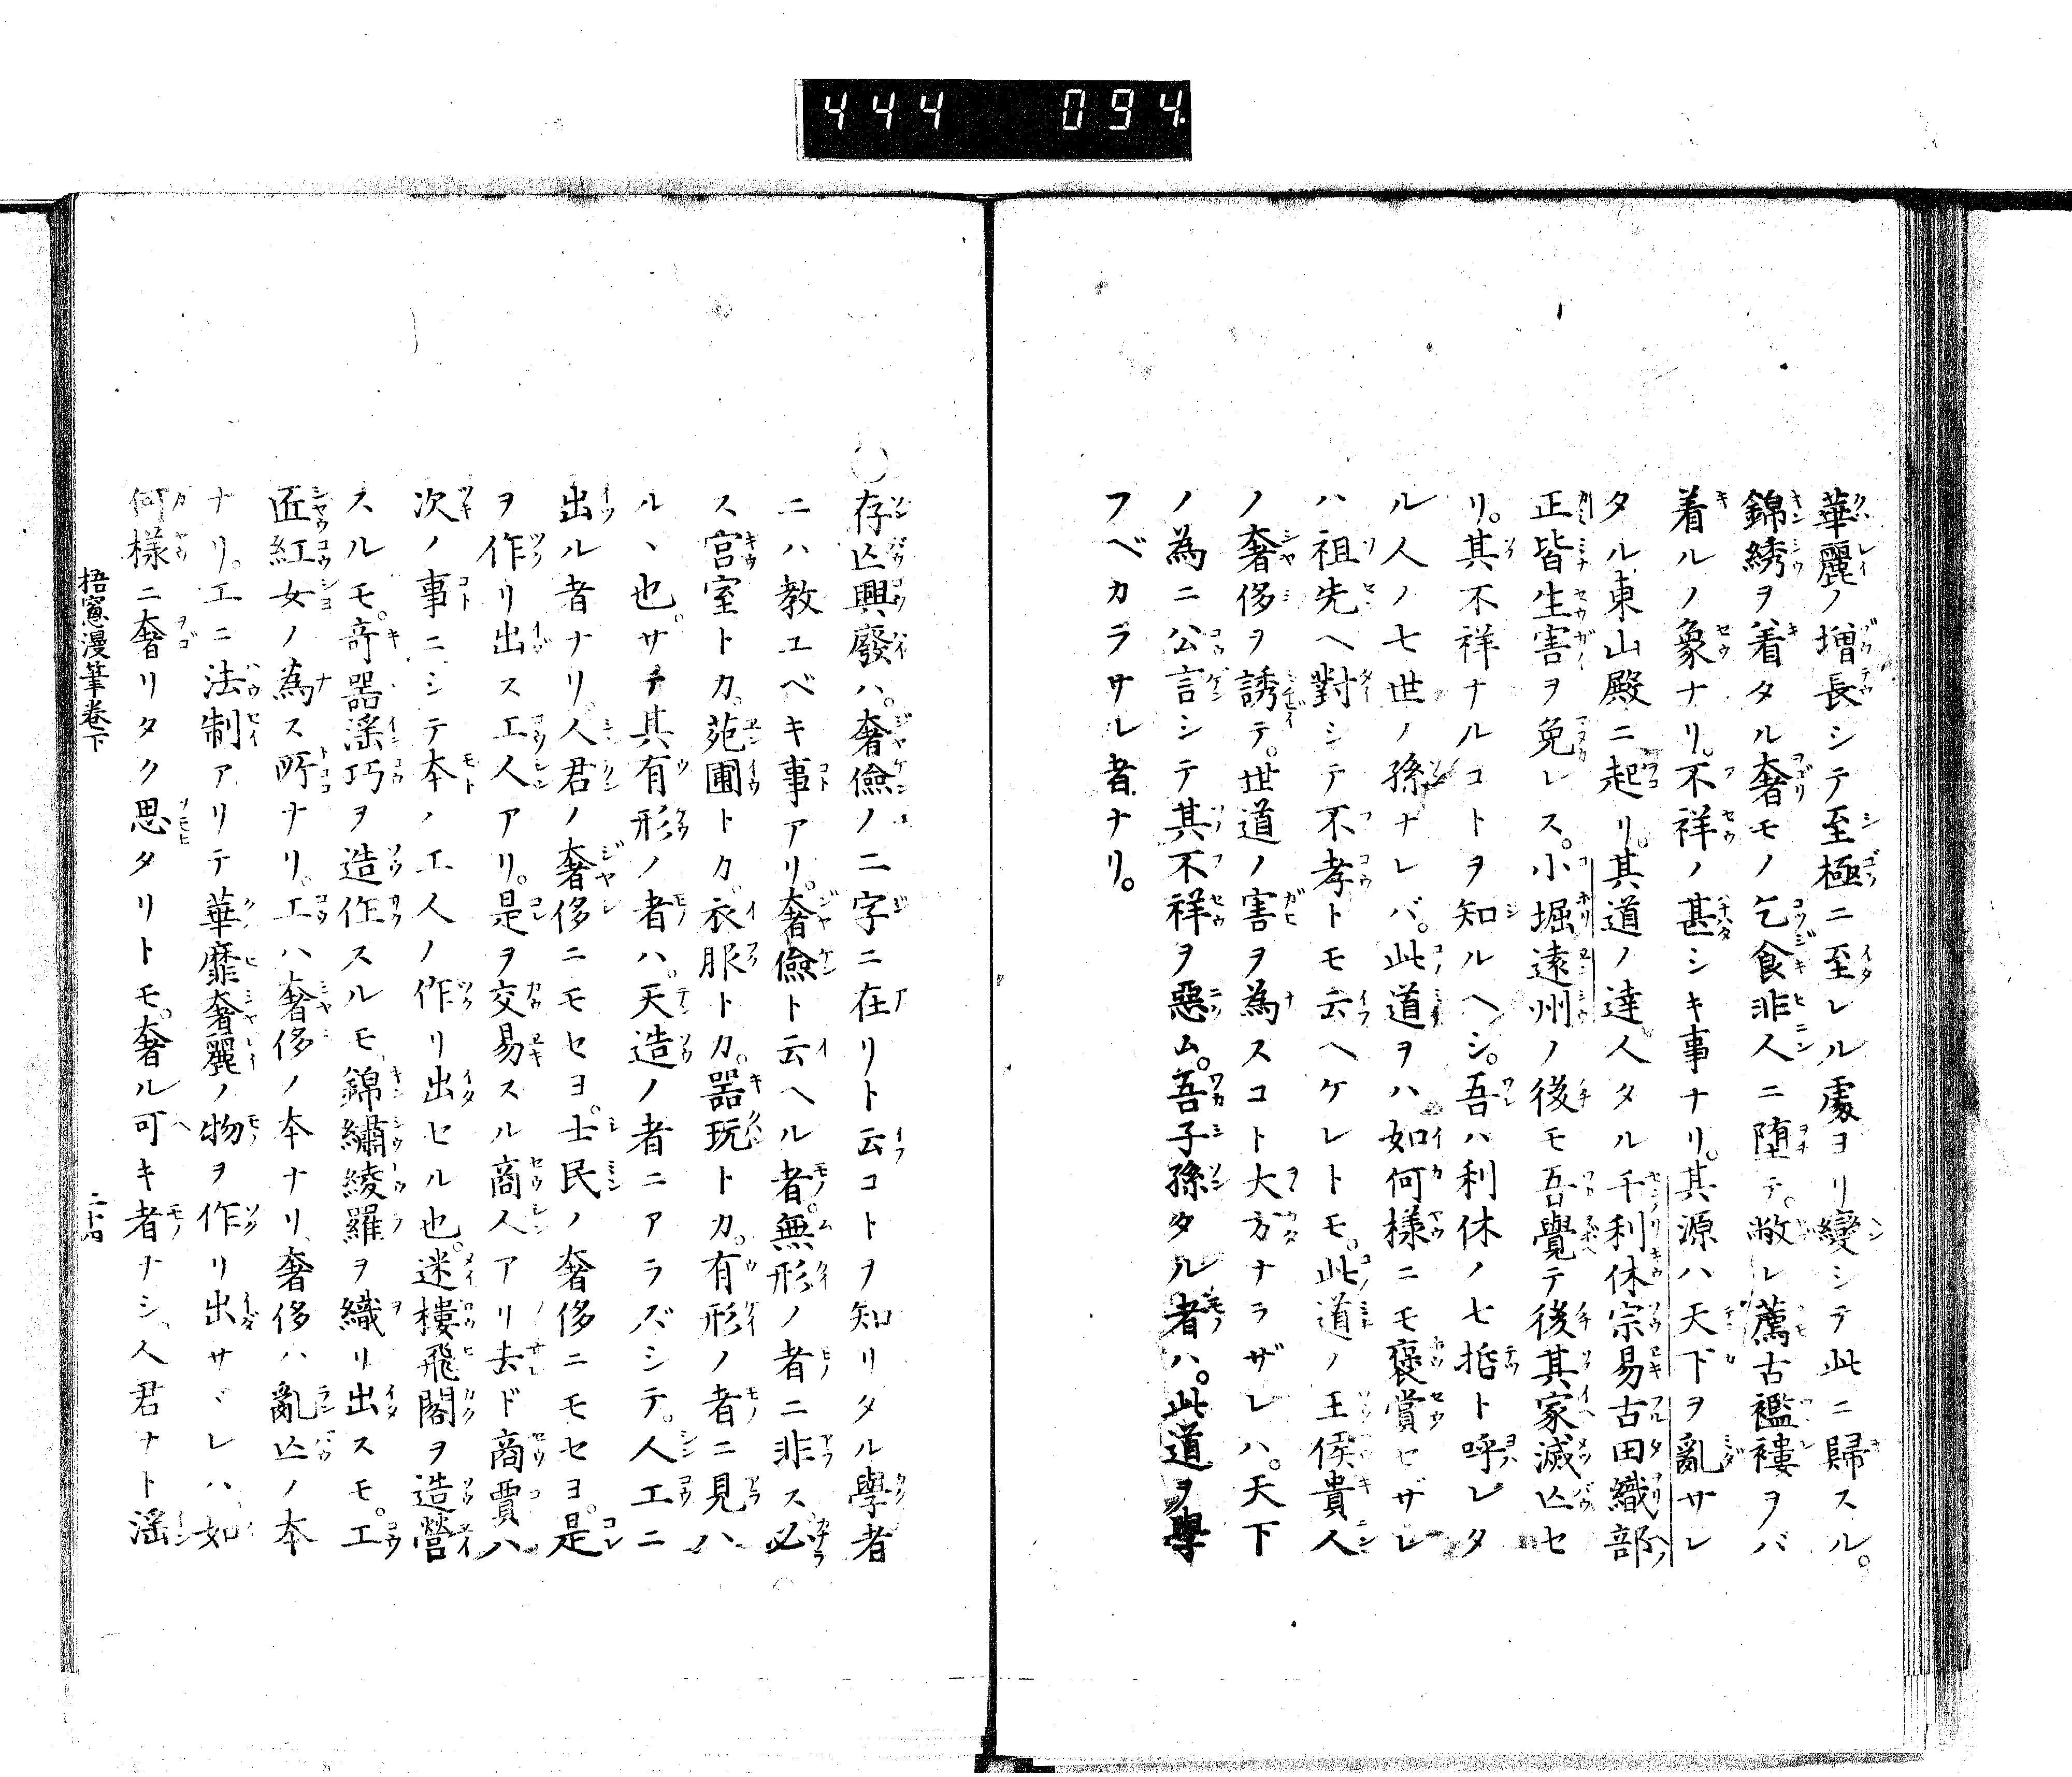 444 094
華麗ノ増長シテ至極ニ至レル處ヨリ變シテ此ニ歸スル。
錦綉ヲ着タル奢モノ乞食非人ニ堕テ。敝レ薦古襤褸ヲバ
着ルノ象ナリ。不祥ノ甚シキ事ナリ。其源ハ天下ヲ亂サレ
タル東山殿ニ起リ。其道ノ達人タル千利休宗易古田織部
正皆生害ヲ免レス。小堀遠州ノ後モ吾覺テ後其家滅亡セ
リ。其不祥ナルコトヲ知ルヘシ。吾ハ利休ノ七哲ト呼レタ
ル人ノ七世ノ孫ナレバ。此道ヲハ如何樣ニモ褒賞セザレ
ハ祖先ヘ對シテ不孝トモ云ヘケレトモ。此道ノ王侯貴人
ノ奢侈ヲ誘テ。世道ノ害ヲ為スコト大方ナラザレハ。天下
ノ為ニ公言シテ其不祥ヲ惡ム。吾子孫タル者ハ。此道ヲ學
フベカラサル者ナリ。
〇存亡興廢ハ。奢儉ノ二字ニ在リト云コトヲ知リタル學者
ニハ教ユベキ事アリ。奢儉ト云ヘル者。無形ノ者ニ非ス。必
ス宮室トカ。苑圃トカ。衣服トカ。器玩トカ。有形ノ者ニ見ハ
ルヽ也。サテ其有形ノ者ハ。天造ノ者ニアラズシテ。人工ニ
出ル者ナリ。人君ノ奢侈ニモセヨ。士民ノ奢侈ニモセヨ。是
ヲ作リ出ス工人アリ。是ヲ交易スル商人アリ去ド商賈ハ
次ノ事ニシテ本ノ工人ノ作リ出セル也。迷樓飛閣ヲ造營
スルモ。奇器淫巧ヲ造作スルモ。錦繡綾羅ヲ織リ出スモ。工
匠紅女ノ為ス所ナリ。工ハ奢侈ノ本ナリ。奢侈ハ亂亡ノ本
ナリ。工ニ法制アリテ華靡奢麗ノ物ヲ作リ出サヾレハ如
何樣ニ奢リタク思タリトモ。奢ル可キ者ナシ。人君ナト淫
梧窻漫筆巻下 二十四